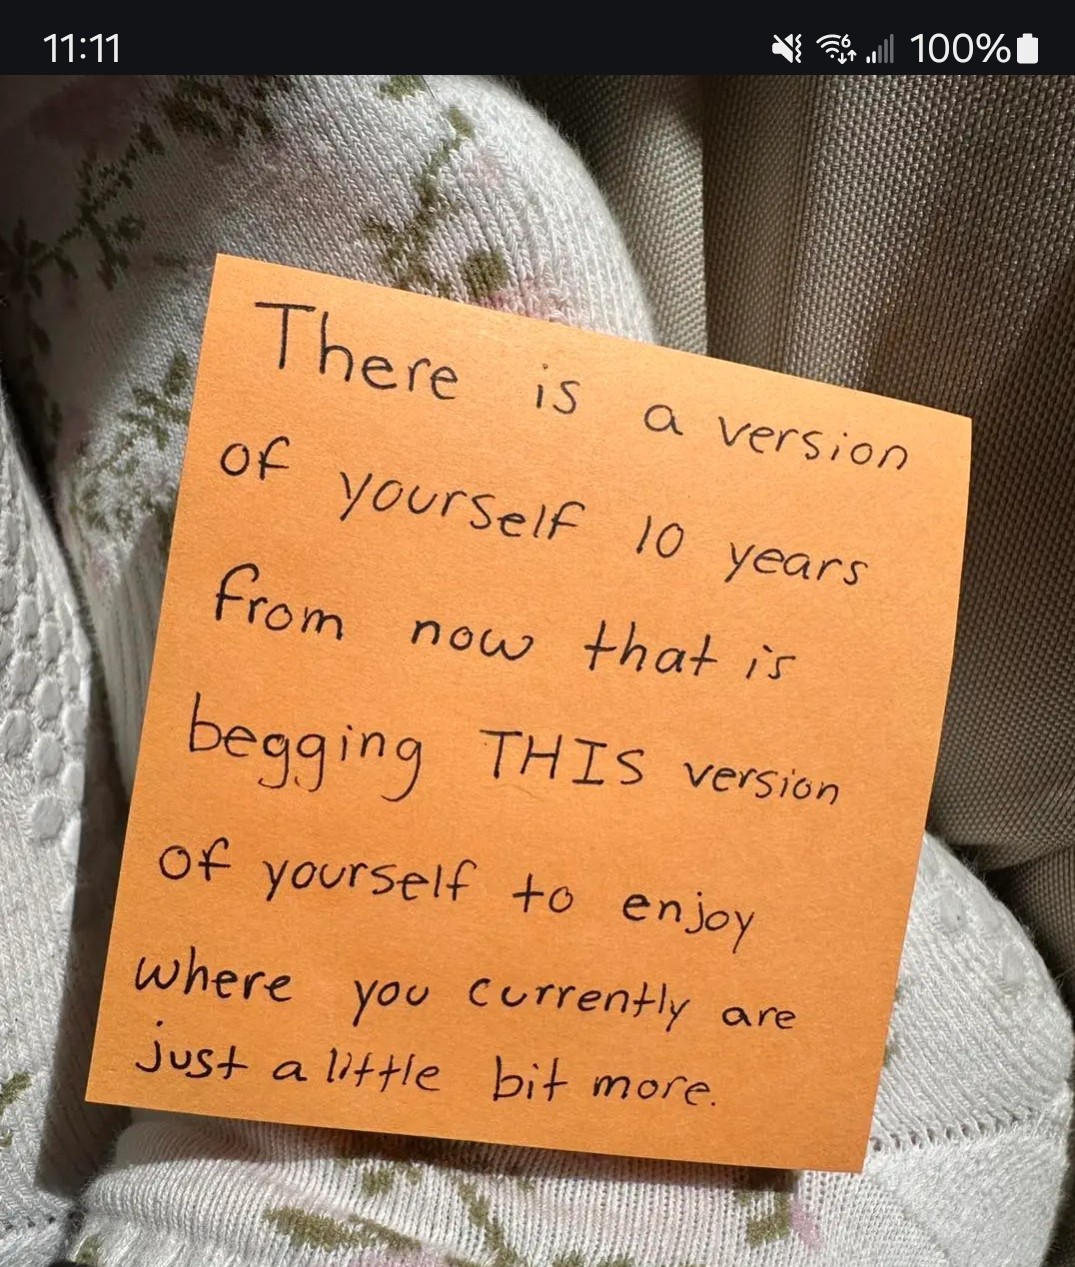 11:11
100%
There is a version
of yourself 10 years
from now that is
begging THIS version
of yourself to enjoy
where you currently are
just a little bit more.